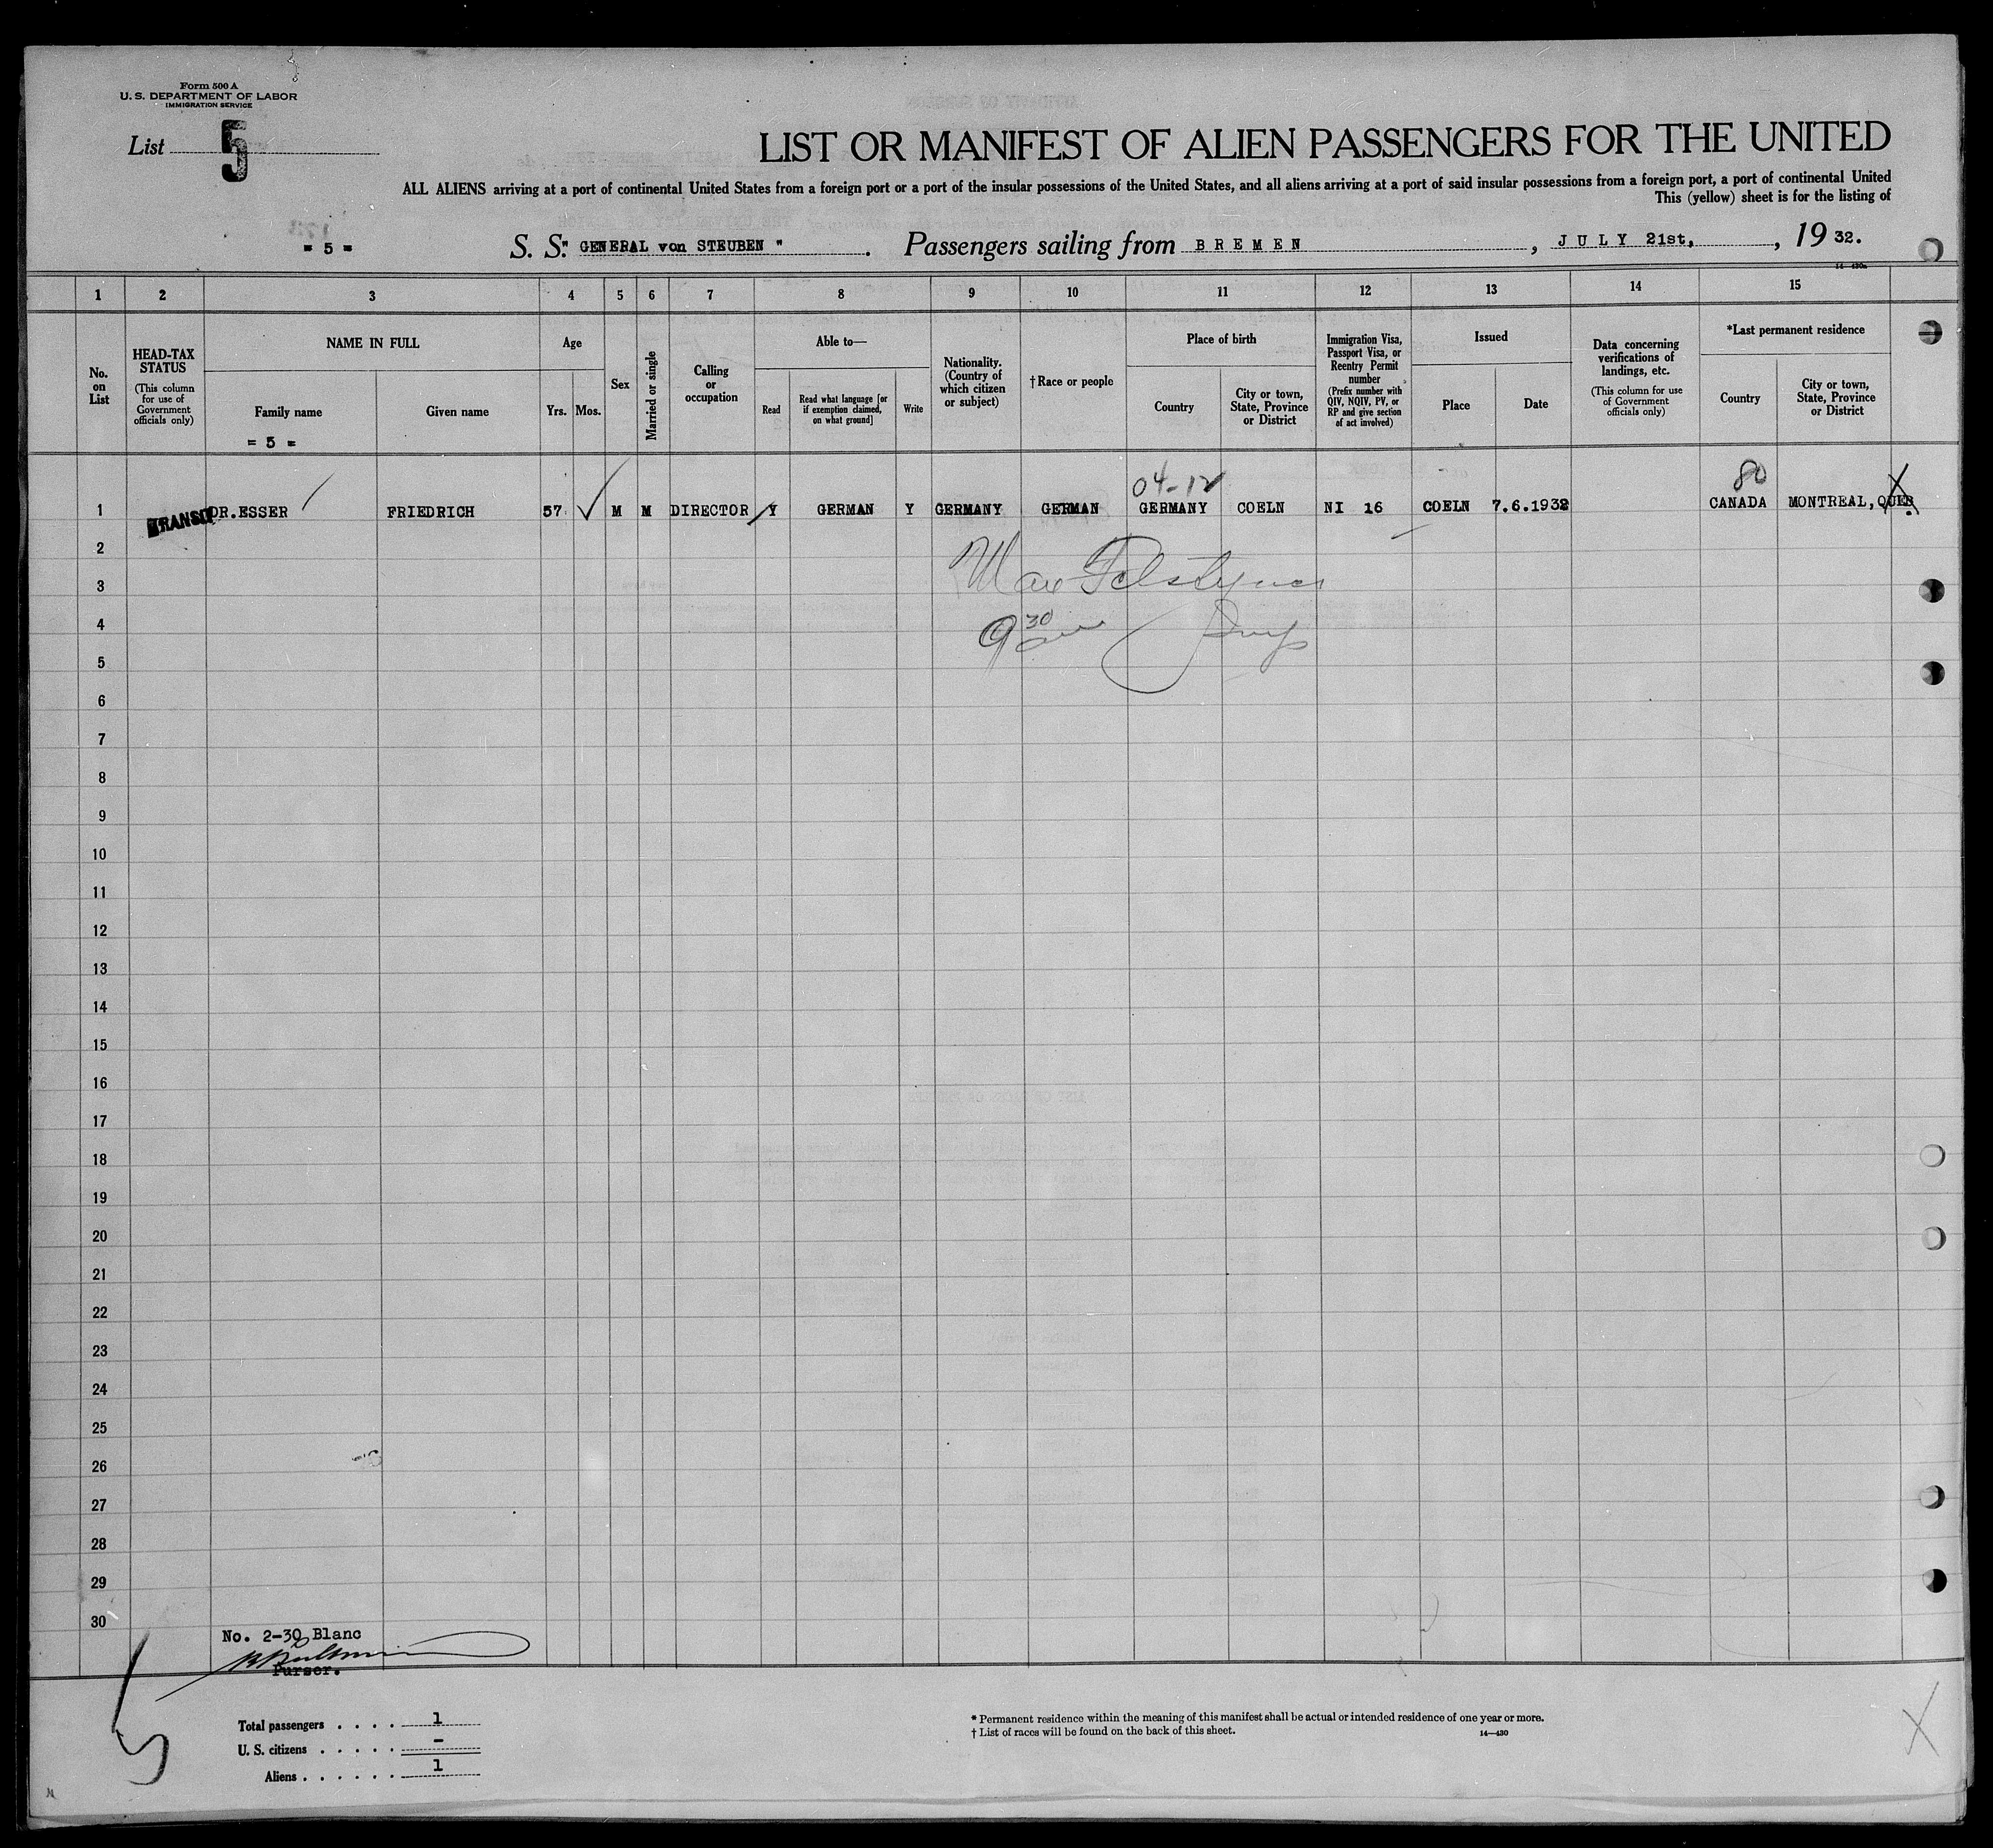 Form 500 A
U. S. DEPARTMENT OF LABOR
IMMIGRATION SERVICE
List 5
LIST OR MANIFEST OF ALIEN PASSENGERS FOR THE UNITED
ALL ALIENS arriving at a port of continental United States from a foreign port or a port of the insular possessions of the United States, and all aliens arriving at a port of said insular possessions from a foreign port, a port of continental United
This (yellow) sheet is for the listing of
= 5 = S. S. " GENERAL von STEUBEN ". Passengers sailing from BREMEN, JULY 21st, , 19 32.
14—430a
1 2 3 4 5 6 7 8 9 10 11 12 13 14 15
No. on List
HEAD-TAX STATUS
(This column for use of Government officials only)
NAME IN FULL
Family name
Given name
= 5 =
Age
Yrs. Mos.
Sex
Married or single
Calling or occupation
Able to—
Read
Read what language [or if exemption claimed, on what ground]
Write
Nationality. (Country of which citizen or subject)
† Race or people
Place of birth
Country
City or town, State, Province or District
Immigration Visa, Passport Visa, or Reentry Permit number
(Prefix number with QIV, NQIV, PV, or RP and give section of act involved)
Issued
Place
Date
Data concerning verifications of landings, etc.
(This column for use of Government officials only)
*Last permanent residence
Country
City or town, State, Province or District
04-12
80
1 TRANSIT DR.ESSER FRIEDRICH 57 M M DIRECTOR Y GERMAN Y GERMANY GERMAN GERMANY COELN NI 16 COELN 7.6.1932 CANADA MONTREAL, QUEB.
2
Max
3
4
9 30
5
6
7
8
9
10
11
12
13
14
15
16
17
18
19
20
21
22
23
24
25
26
27
28
29
30
No. 2-30 Blanc
Purser.
5
Total passengers . . . . 1
U. S. citizens . . . . . -
Aliens . . . . . . 1
* Permanent residence within the meaning of this manifest shall be actual or intended residence of one year or more.
† List of races will be found on the back of this sheet.
14—430